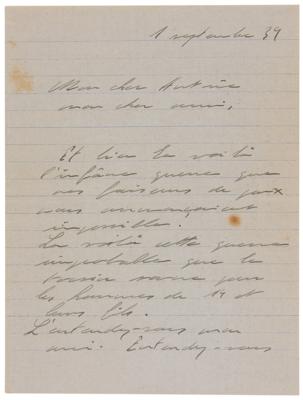 1 septembre 39
Mon cher
mon cher ami,
Et bien la voilà
l'infâme guerre que
nos faiseurs de paix
nous annonçaient
impossible.
La voilà cette guerre
improbable que le
sonne pour
les hommes de 14 et
leurs fils.
L'entendez-vous mon
ami. Entendez-vous